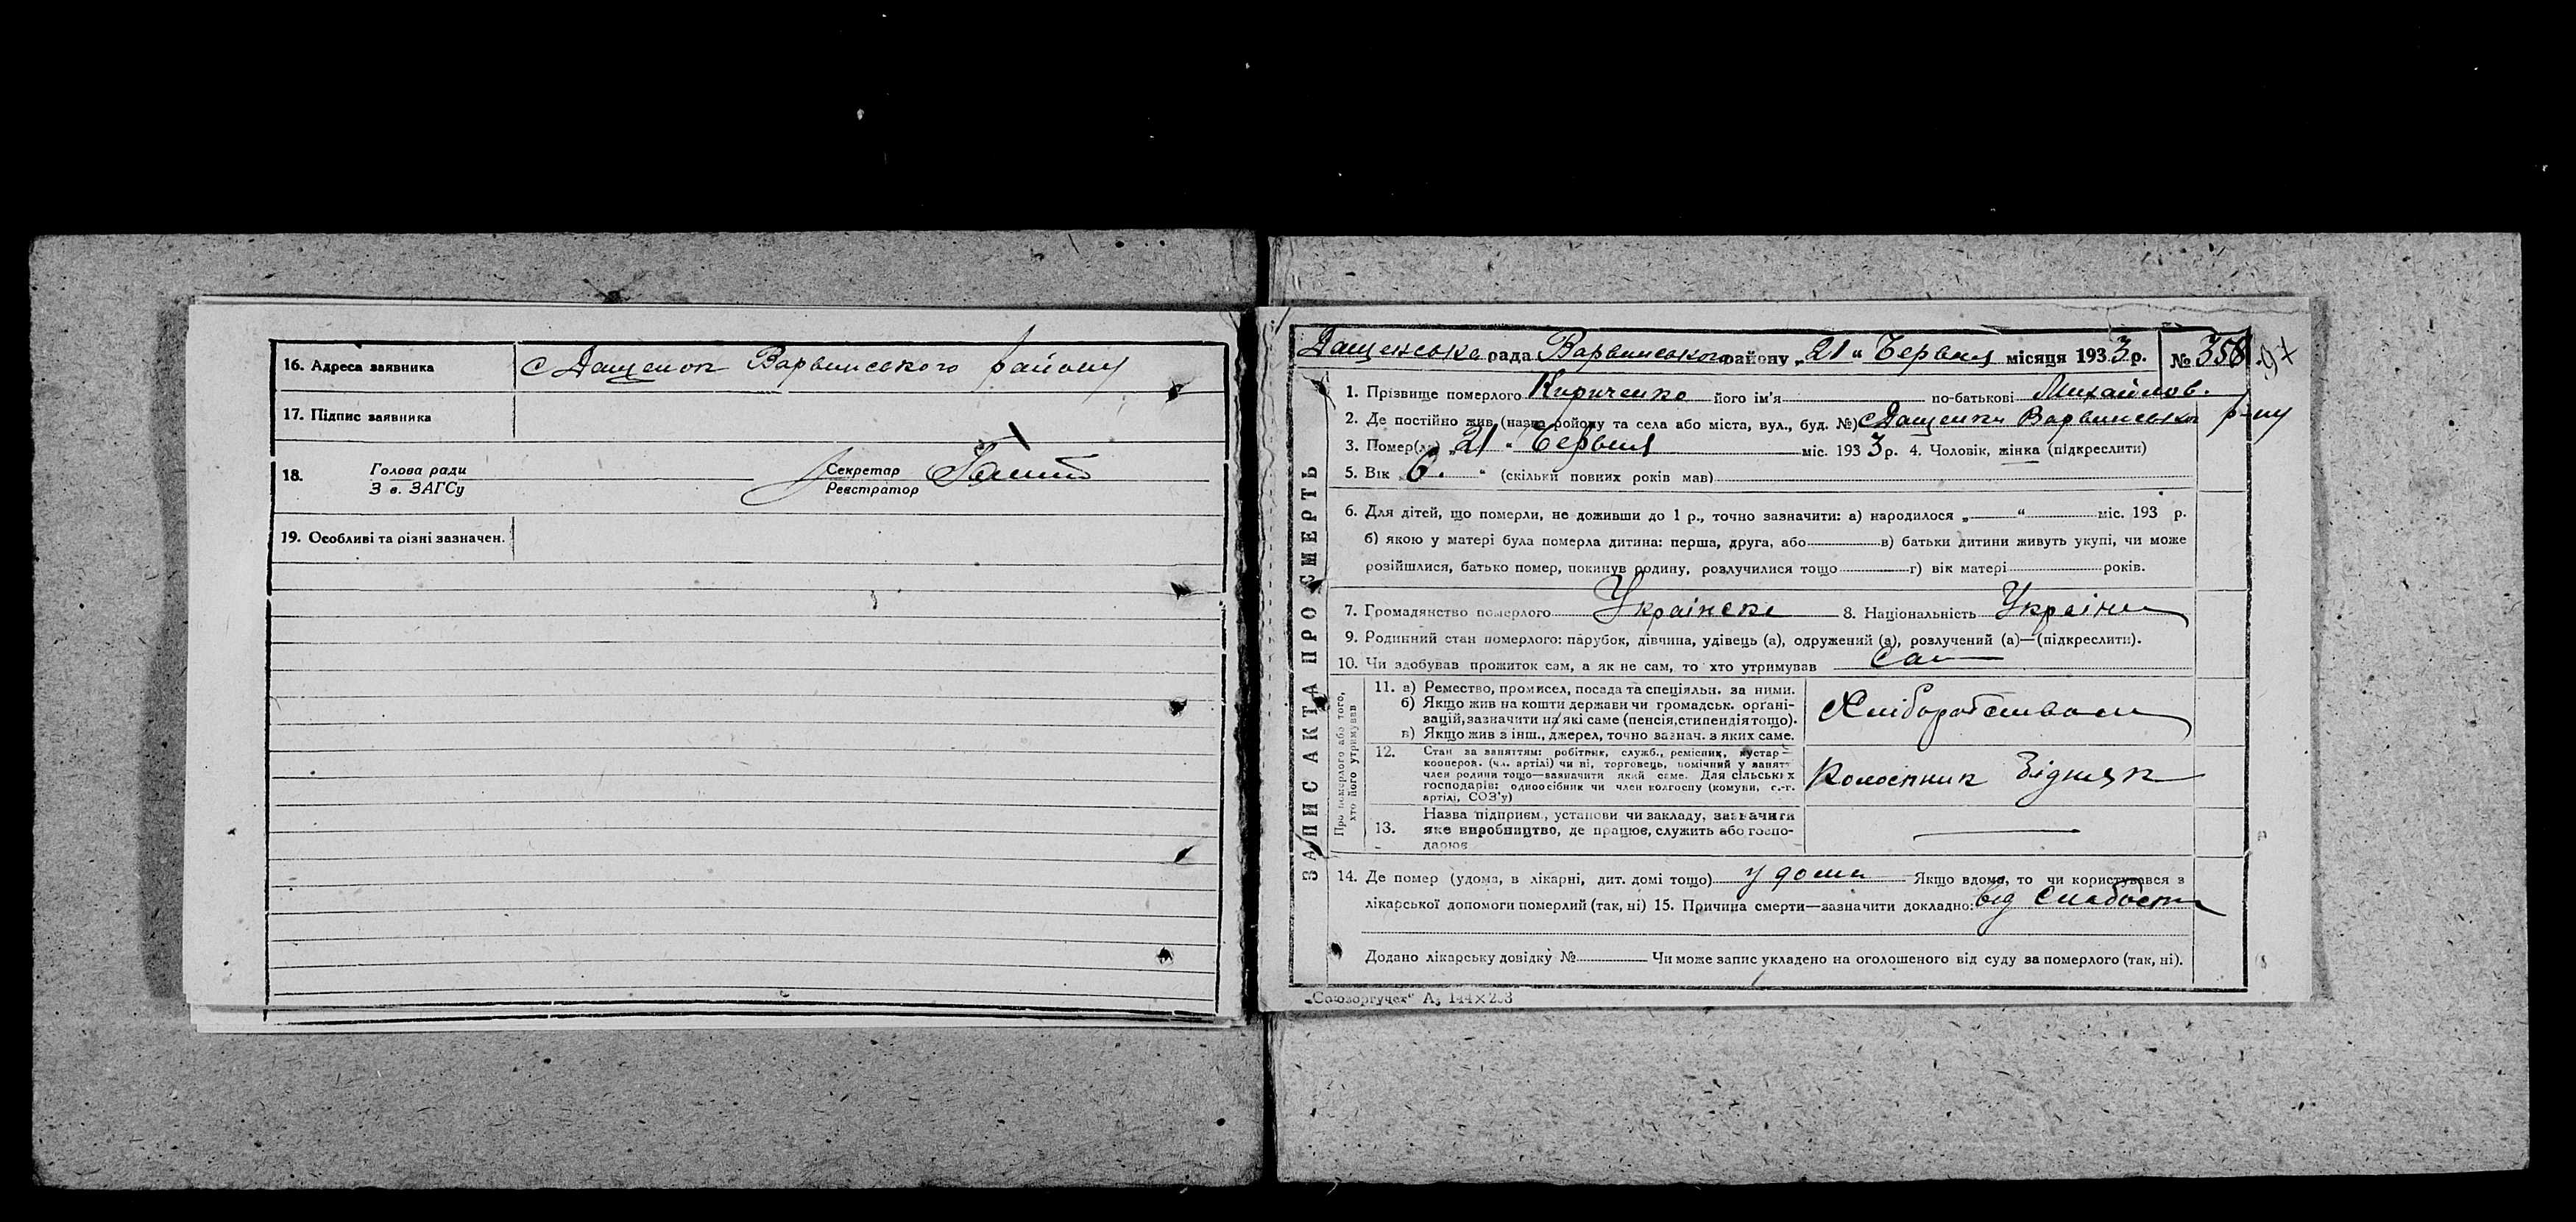 16. Адреса заявника с Дащенок Варвинського району
17. Підпис заявника
18. Голова ради
З в. ЗАГСу
Секретар
Реєстратор
19. Особливі та різні зазначен.
Дащенська рада Варвинського району „21“ Червня місяця 1933 р. № 358
97
ЗАПИС АКТА ПРО СМЕРТЬ
1. Прізвище померлого Кириченко його ім'я по-батькові Михайлов.
2. Де постійно жив (назва району та села або міста, вул., буд. №) с Дащенки Варвинськ р-ну
3. Помер(ла) „21“ Червня міс. 1933 р. 4. Чоловік, жінка (підкреслити)
5. Вік 6. “ (скільки повних років мав)
6. Для дітей, що померли, не доживши до 1 р., точно зазначити: а) народилося „ “ міс. 193 р.
б) якою у матері була померла дитина: перша, друга, або в) батьки дитини живуть укупі, чи може
розійшлися, батько помер, покинув родину, розлучилися тощо г) вік матері років.
7. Громадянство померлого Українське 8. Національність Україн
9. Родинний стан померлого: парубок, дівчина, удівець (а), одружений (а), розлучений (а)—(підкреслити).
10. Чи здобував прожиток сам, а як не сам, то хто утримував Сам
Про померлого або того,
хто його утримував
11. а) Ремество, промисел, посада та спеціяльн. за ними.
б) Якщо жив на кошти держави чи громадськ. органі-
зацій, зазначити на які саме (пенсія, стипендія тощо).
в) Якщо жив з інш., джерел, точно зазнач. з яких саме.
Хліборобством
12. Стан за заняттям: робітник, служб., ремісник, кустар
кооперов. (чл. артілі) чи ні, торговець, помічний у занятт
член родини тощо—зазначити який саме. Для сільських
господарів: одноосібник чи член колгоспу (комуни, с.-г.
артілі, СОЗ'у)
Колоспник Бідняк
13. Назва підприєм., установи чи закладу, зазначити
яке виробництво, де працює, служить або госпо-
дарює
14. Де помер (удома, в лікарні, дит. домі тощо) у дома Якщо вдома, то чи користувався з
лікарської допомоги померлий (так, ні) 15. Причина смерти—зазначити докладно: від Слабости
Додано лікарську довідку № Чи може запис укладено на оголошеного від суду за померлого (так, ні).
„Союзоргучет“ А₅ 144×203